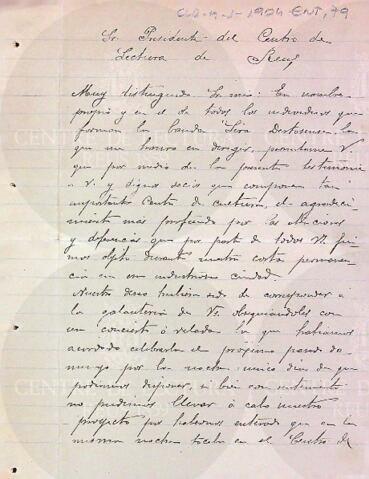 1904 ENT, 79
Sr Presidente del Centro de
Lectura de Reus
Muy distinguido Sr mio: En nombre
propio y en el de todos los individuos que
forman la banda "Lira Dertosense" la
que me honro en dirigir, permitame V
que por medio de la presente testimonie
a V. y dignos socios que componen tan
importante Centro de cultura, el agradeci
miento más profundo por las atenciones
y deferencias que por parte de todos Vs. fui
mos objeto durante nuestra corta permanen
cia en esa industriosa ciudad.
Nuestro deseo hubiera sido de corresponder a
la galanteria de Vs. obsequiandoles con
un concierto ó velada la que habiamos
acordado celebrarla el próximo pasado do
mingo por la noche único dia de que
podiamos disponer, si bien con sentimiento
no pudimos llevar á cabo nuestro
proyecto por habernos enterado que en la
misma noche tocaba en el Centro de